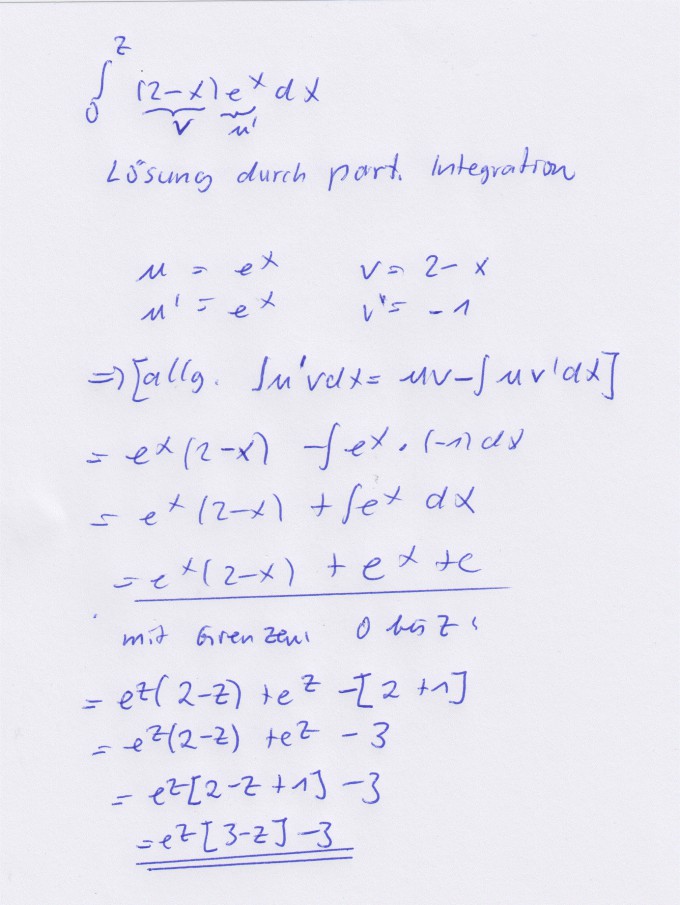 ∫₀ᶻ (2-x) eˣ dx
v u'
Lösung durch part. Integration
u = eˣ v = 2-x
u' = eˣ v' = -1
⇒ [allg. ∫u'vdx = uv-∫uv'dx]
= eˣ(2-x) -∫eˣ·(-1)dx
= eˣ(2-x) +∫eˣ dx
= eˣ(2-x) + eˣ +c
mit Grenzen: 0 bis z:
= eᶻ(2-z) +eᶻ -[2+1]
= eᶻ(2-z) +eᶻ - 3
= eᶻ[2-z+1] -3
= eᶻ[3-z] -3